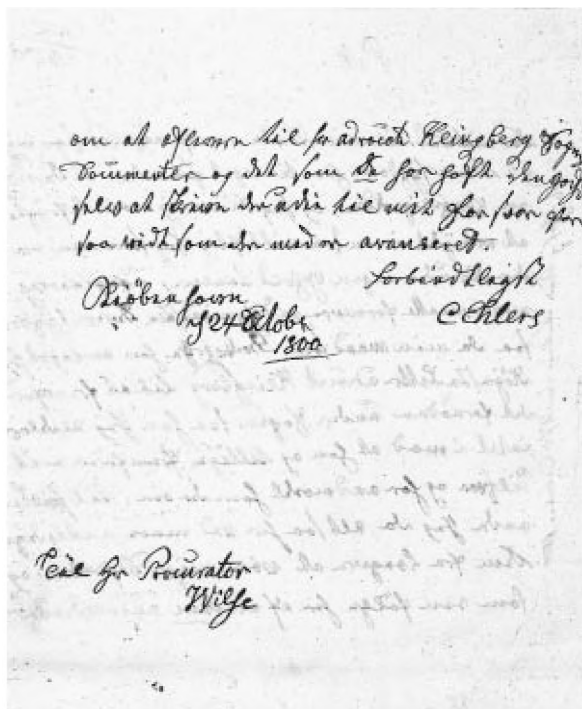 om at aflevere til hr advocat Klingberg
Documenter og det som De har haft den
selv at skrive derudie til mit forsvar
saa vidt som der med er avanseret.
forbindtligst
Kiöbenhavn
d 24 Octobr
1800
C Ehlers
Til Hr Procurator
Wilse